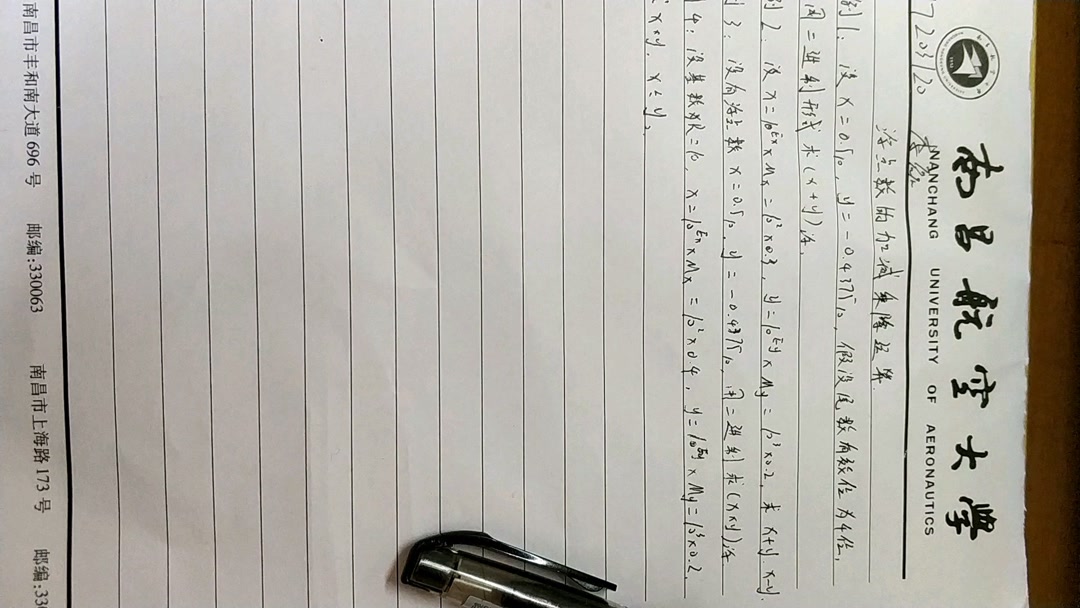 南昌航空大学
NANCHANG UNIVERSITY OF AERONAUTICS
浮点数的加减乘除运算
例1. 设 x=0.5₁₀, y=-0.4375₁₀, 假设尾数有效位为4位,
用二进制形式求(x+y)浮.
例2. 设 x=10^Ex×Mx=10²×0.3, y=10^Ey×My=10³×0.2, 求 x+y, x-y.
3: 设有浮点数 x=0.5₁₀, y=-0.4375₁₀, 用二进制求(x×y)浮
4: 设基数R=10, x=10^Ex×Mx=10²×0.4, y=10^Ey×My=10³×0.2,
求 x×y, x÷y.
南昌市丰和南大道 696 号 邮编:330063 南昌市上海路 173 号 邮编:330